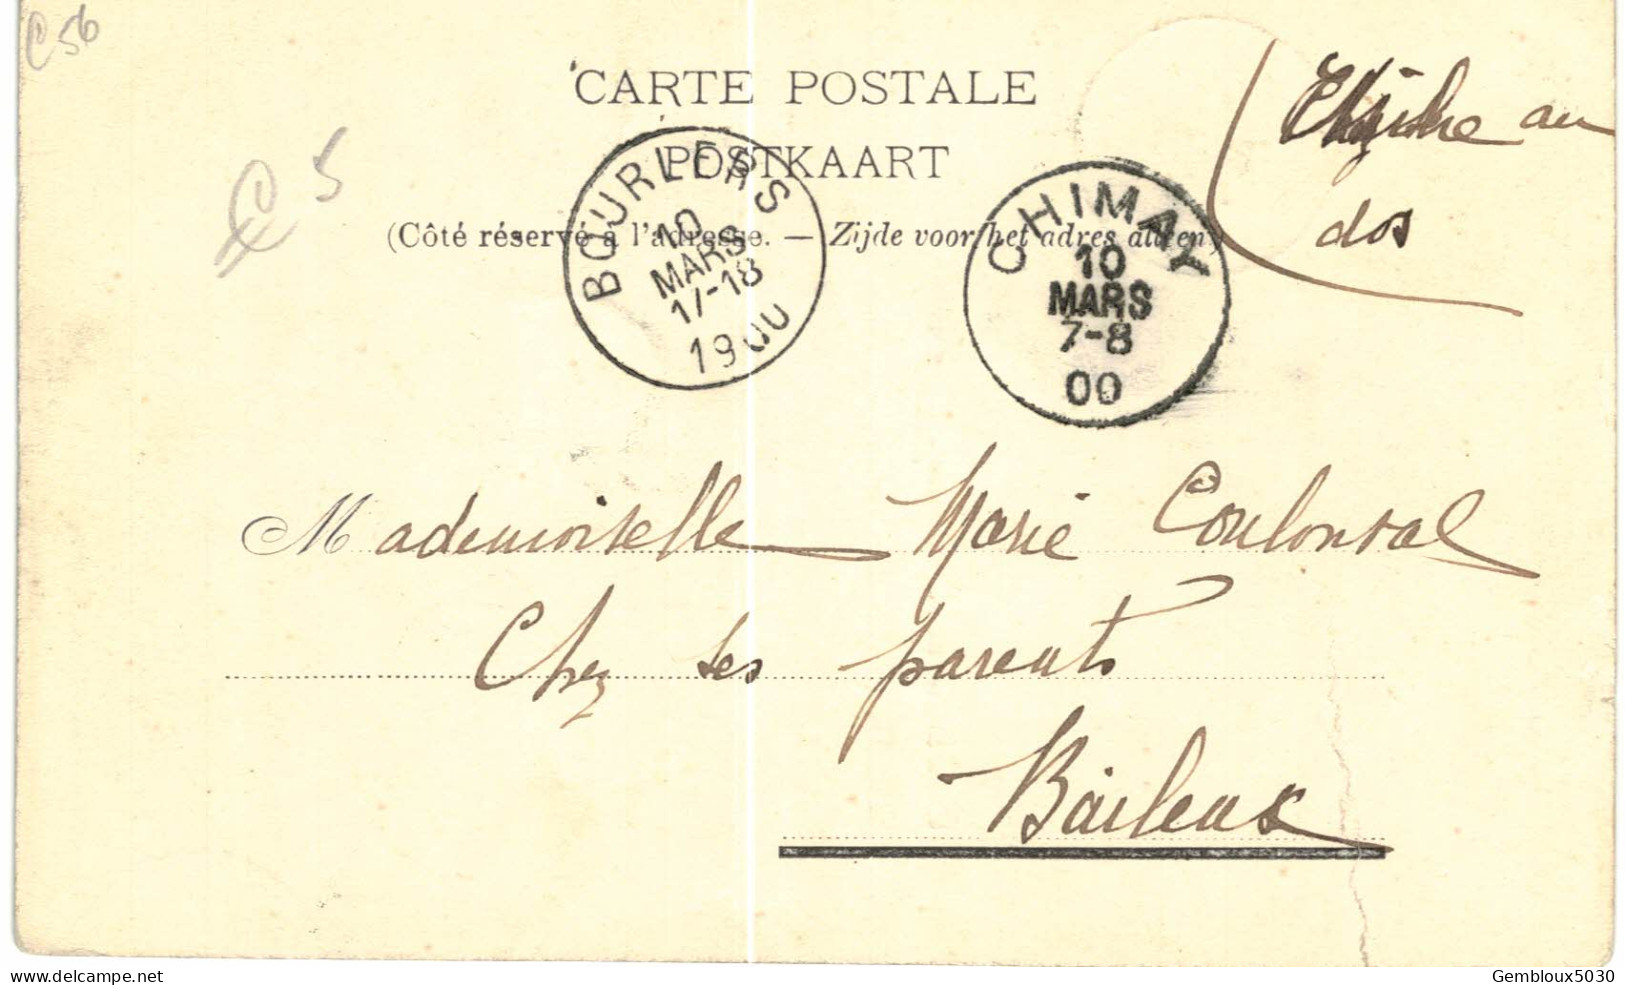 C 56
CARTE POSTALE
POSTKAART
(Côté réservé à l'adresse. — Zijde voor het adres alleen)
BOURLERS
10
MARS
17-18
1900
CHIMAY
10
MARS
7-8
00
au
dos
€ 5
Mademoiselle Marie Coulonval
Chez ses parents
Baileux
delcampe.net
Gembloux5030